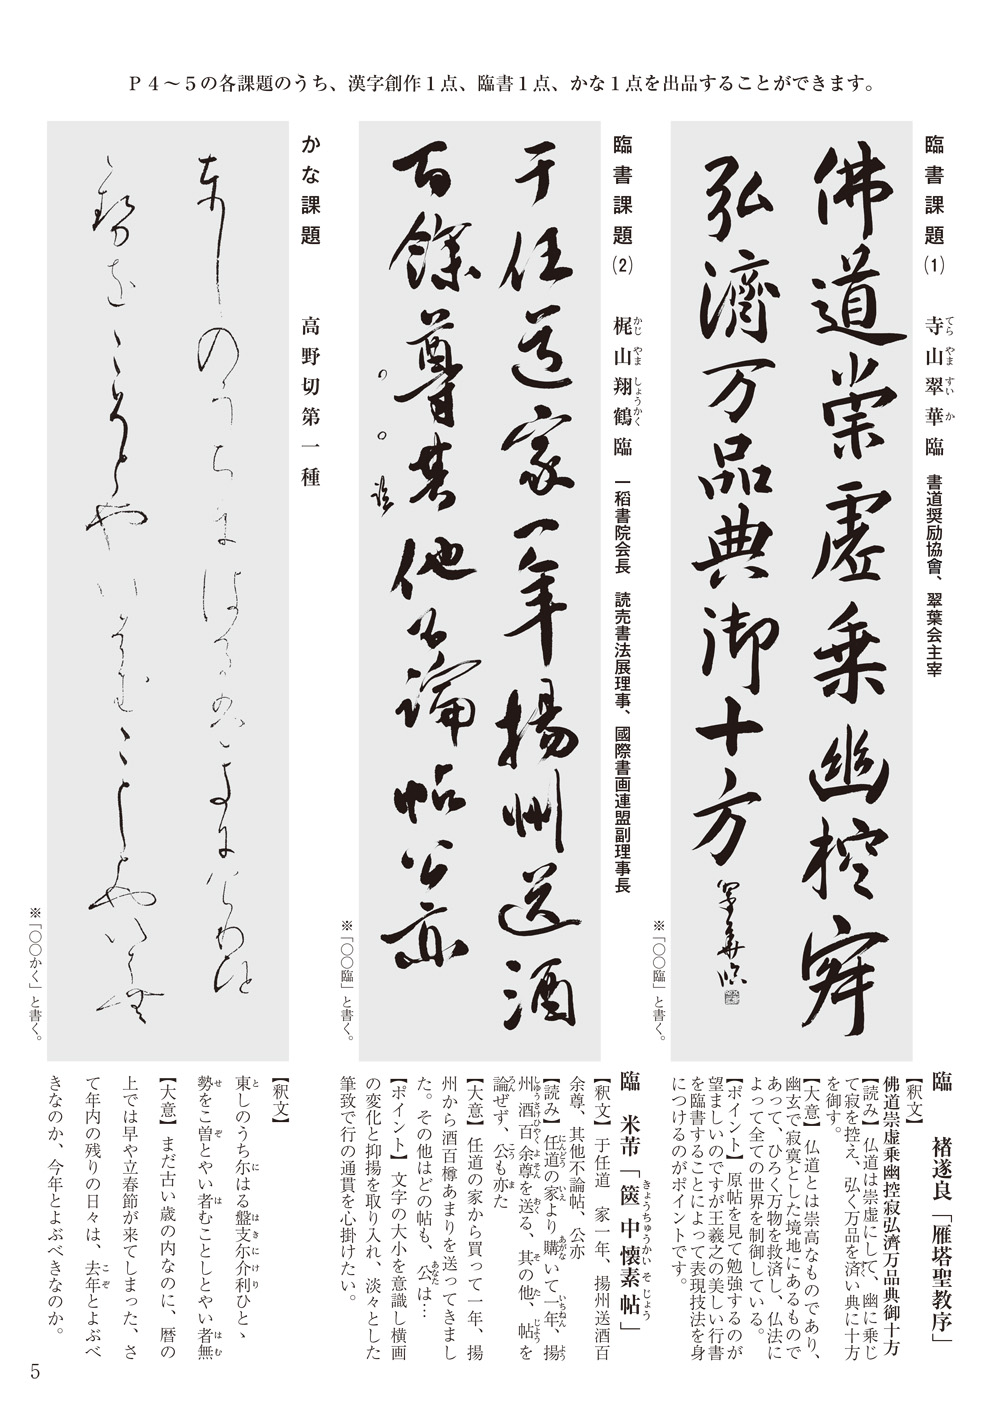 Ｐ４～５の各課題のうち、漢字創作１点、臨書１点、かな１点を出品することができます。
臨書課題(1) 寺山翠華臨 書道奨励協會、翠葉会主宰
てらやますいか
佛道崇虚乗幽控寂
弘濟万品典御十方
翠華臨
※「〇〇臨」と書く。
臨 褚遂良「雁塔聖教序」
【釈文】
佛道崇虚乗幽控寂弘濟万品典御十方
【読み】仏道は崇虚にして、幽に乗じ
て寂を控え、弘く万品を済い典に十方
を御す。
【大意】仏道とは崇高なものであり、
幽玄で寂寞とした境地にあるもので
あって、ひろく万物を救済し、仏法に
よって全ての世界を制御している。
【ポイント】原帖を見て勉強するのが
望ましいのですが王羲之の美しい行書
を臨書することによって表現技法を身
につけるのがポイントです。
臨書課題(2) 梶山翔鶴臨 一稻書院会長 読売書法展理事、國際書画連盟副理事長
かじやましょうかく
于任道家一年揚州送酒
百餘尊其他不論帖公亦
臨
※「〇〇臨」と書く。
臨 米芾「篋中懐素帖」
きょうちゅうかいそじょう
【釈文】于任道 家一年、揚州送酒百
余尊、其他不論帖、公亦
【読み】任道の家より購いて一年、揚
州酒百余尊を送る、其の他、帖を
論ぜず、公も亦た
【大意】任道の家から買って一年、揚
州から酒百樽あまりを送ってきまし
た。その他はどの帖も、公は…
【ポイント】文字の大小を意識し横画
の変化と抑揚を取り入れ、淡々とした
筆致で行の通貫を心掛けたい。
かな課題 高野切第一種
東しのうち尓はる盤支尓介利ひとゝ
勢をこ曽とやい者むことしとやい者無
※「〇〇かく」と書く。
【釈文】
東しのうち尓はる盤支尓介利ひとゝ
勢をこ曽とやい者むことしとやい者無
【大意】まだ古い歳の内なのに、暦の
上では早や立春節が来てしまった、さ
て年内の残りの日々は、去年とよぶべ
きなのか、今年とよぶべきなのか。
5